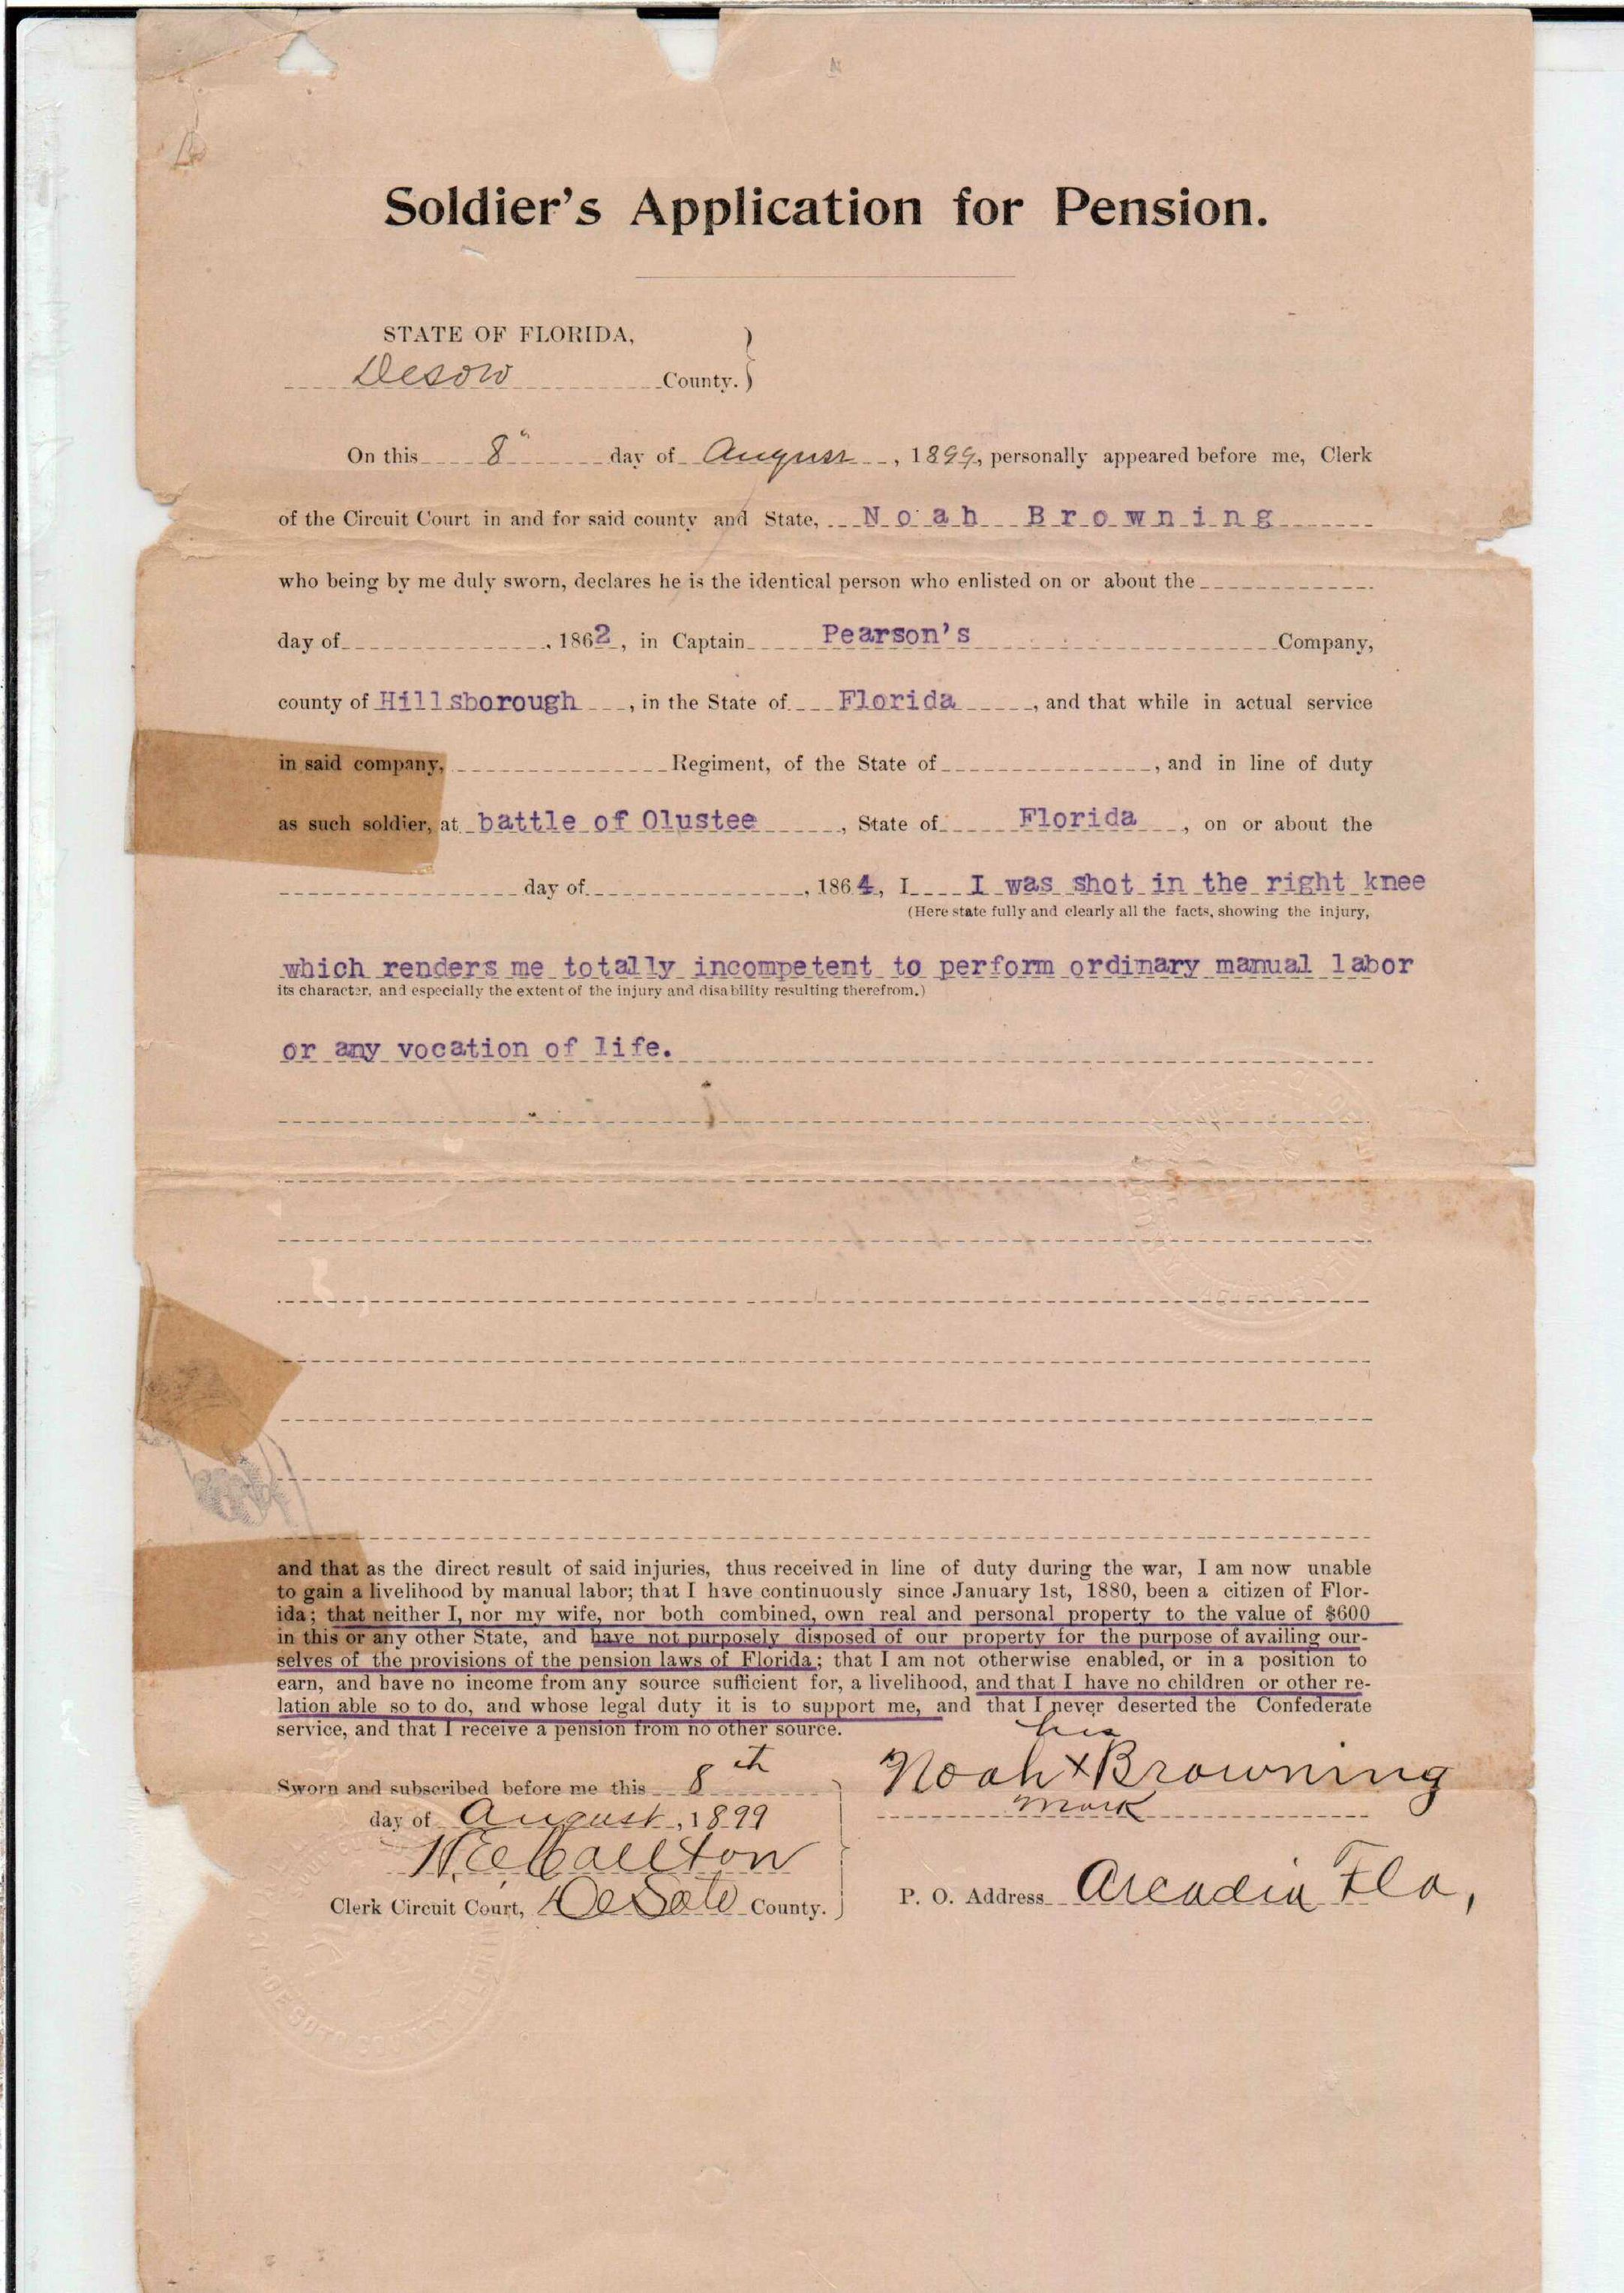 Soldier's Application for Pension.
STATE OF FLORIDA,
Desoto County.
On this 8" day of August, 1899, personally appeared before me, Clerk
of the Circuit Court in and for said county and State, Noah Browning
who being by me duly sworn, declares he is the identical person who enlisted on or about the
day of , 1862, in Captain Pearson's Company,
county of Hillsborough, in the State of Florida, and that while in actual service
in said company, Regiment, of the State of , and in line of duty
as such soldier, at battle of Olustee, State of Florida, on or about the
day of , 1864, I I was shot in the right knee
(Here state fully and clearly all the facts, showing the injury,
which renders me totally incompetent to perform ordinary manual labor
its character, and especially the extent of the injury and disability resulting therefrom.)
or any vocation of life.
and that as the direct result of said injuries, thus received in line of duty during the war, I am now unable
to gain a livelihood by manual labor; that I have continuously since January 1st, 1880, been a citizen of Flor-
ida; that neither I, nor my wife, nor both combined, own real and personal property to the value of $600
in this or any other State, and have not purposely disposed of our property for the purpose of availing our-
selves of the provisions of the pension laws of Florida; that I am not otherwise enabled, or in a position to
earn, and have no income from any source sufficient for, a livelihood, and that I have no children or other re-
lation able so to do, and whose legal duty it is to support me, and that I never deserted the Confederate
service, and that I receive a pension from no other source.
his
Noah x Browning
mark
Sworn and subscribed before me this 8th
day of August, 1899
Clerk Circuit Court, DeSoto County.
P. O. Address Arcadia Fla,
DESOTO COUNTY